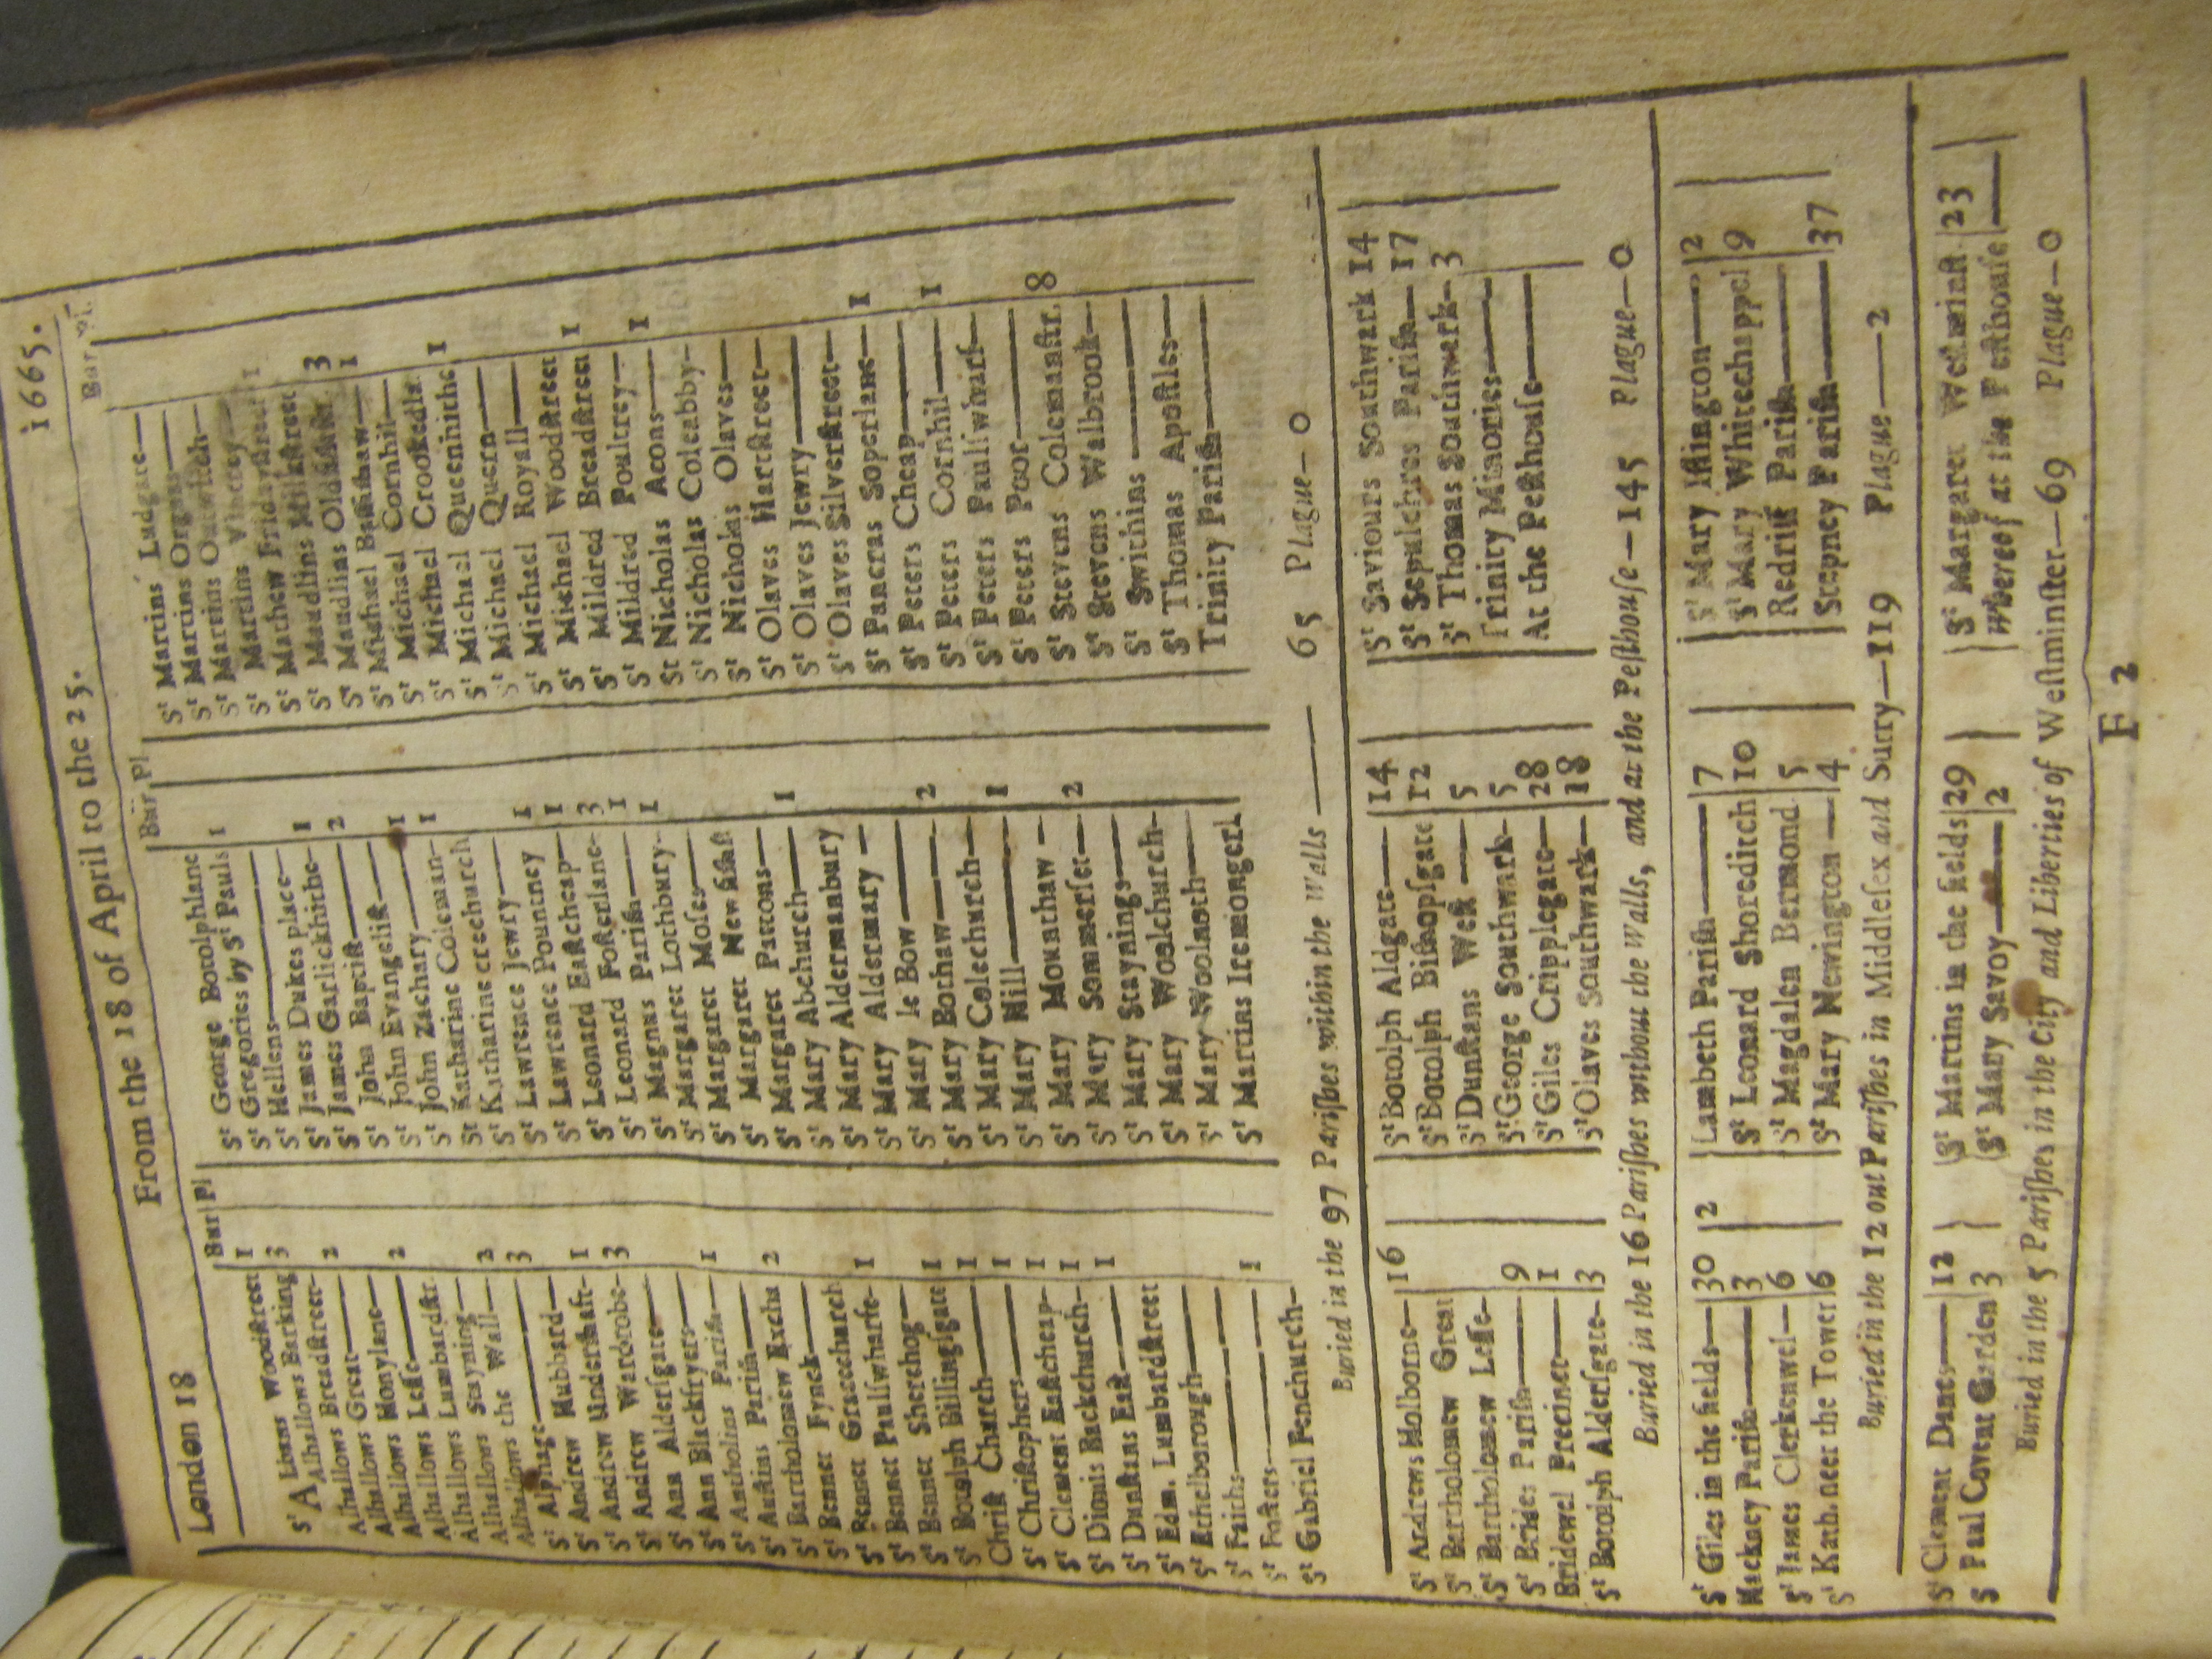 London 18 From the 18 of April to the 25. 1665.
Bur Pl
St Albans Woodſtreet 1
Alhallows Barking 3
Alhallows Breadſtreet— 2
Alhallows Great—
Alhallows Honylane— 2
Alhallows Leſſe—
Alhallows Lumbardſtr
Alhallows Stayning— 2
Alhallows the Wall— 3
St Alphage—
St Andrew Hubbard— 1
St Andrew Underſhaft— 3
St Andrew Wardrobe—
St Ann Alderſgate—
St Ann Blackfryers— 1
St Antholins Pariſh—
St Auſtins Pariſh— 2
St Bartholomew Excha
St Bennet Fynck—
St Bennet Gracechurch 1
St Bennet Paulſwharfe—
St Bennet Sherehog— 1
St Botolph Billingſgate 1
Chriſt Church— 1
St Chriſtophers— 1
St Clement Eaſtcheap— 1
St Dionis Backchurch— 1
St Dunſtans Eaſt—
St Edm. Lumbardſtreet
St Ethelborough—
St Faiths— 1
St Foſters—
St Gabriel Fenchurch—
Bur Pl
St George Botolphlane 1
St Gregories by St Pauls
St Hellens—
St James Dukes place— 1
St James Garlickhithe— 2
St John Baptiſt—
St John Evangeliſt— 1
St John Zachary— 1
St Katharine Coleman—
St Katharine creechurch
St Lawrence Jewry— 1
St Lawrence Pountney 1
St Leonard Eaſtcheap— 3
St Leonard Foſterlane— 1
St Magnus Pariſh— 1
St Margaret Lothbury—
St Margaret Moſes—
St Margaret Newfiſhſt
St Margaret Pattons— 1
St Mary Abchurch—
St Mary Aldermanbury
St Mary Aldermary—
St Mary le Bow— 2
St Mary Bothaw—
St Mary Colechurch— 1
St Mary Hill—
St Mary Mounthaw— 2
St Mary Sommerſet—
St Mary Stayning—
St Mary Woolchurch—
St Mary Woolnoth—
St Martins Iremongerl
Bur Pl
St Martins Ludgate—
St Martins Organs—
St Martins Outwitch—
St Martins Vintrey—
St Mathew Fridayſtreet 1
St Maudlins Milkſtreet
St Maudlins Oldfiſhſt 3
St Michael Baſſiſhaw— 1
St Michael Cornhil—
St Michael Crookedla 1
St Michael Queenhithe
St Michael Quern—
St Michael Royall—
St Michael Woodſtreet 1
St Mildred Breadſtreet
St Mildred Poultrey— 1
St Nicholas Acons—
St Nicholas Coleabby—
St Nicholas Olaves—
St Olaves Hartſtreet—
St Olaves Jewry—
St Olaves Silverſtreet—
St Pancras Soperlane— 1
St Peters Cheap—
St Peters Cornhil— 1
St Peters Paulſwharf—
St Peters Poor—
St Stevens Colemanſtr. 8
St Stevens Walbrook—
St Swithins—
St Thomas Apoſtles—
Trinity Pariſh—
Buried in the 97 Pariſhes within the Walls— 65 Plague—0
St Andrews Holborne— 16
St Bartholomew Great
St Bartholomew Leſſe—
St Brides Pariſh— 9
Bridewel Precinct— 1
St Botolph Alderſgate— 3
St Botolph Aldgate— 14
St Botolph Biſhopſgate 12
St Dunſtans Weſt— 5
St George Southwark— 5
St Giles Cripplegate— 28
St Olaves Southwark— 18
St Saviours Southwark 14
St Sepulchres Pariſh— 17
St Thomas Southwark— 3
Trinity Minories—
At the Peſthouſe—
Buried in the 16 Pariſhes without the Walls, and at the Peſthouſe—145 Plague—0
St Giles in the fields— 30 2
Hackney Pariſh— 3
St James Clerkenwel— 6
St Kath. neer the Tower 6
Lambeth Pariſh— 7
St Leonard Shoreditch 10
St Magdalen Bermond. 5
St Mary Newington— 4
St Mary Iſlington— 2
St Mary Whitechappel 9
Redriff Pariſh—
Stepney Pariſh— 37
Buried in the 12 out Pariſhes in Middleſex and Surry—119 Plague—2
St Clement Danes— 12
St Paul Covent Garden 3
St Martins in the fields 29
St Mary Savoy— 2
St Margaret Weſtminſt. 23
Whereof at the Peſthouſe
Buried in the 5 Pariſhes in the City and Liberties of Weſtminſter—69 Plague—0
F 2